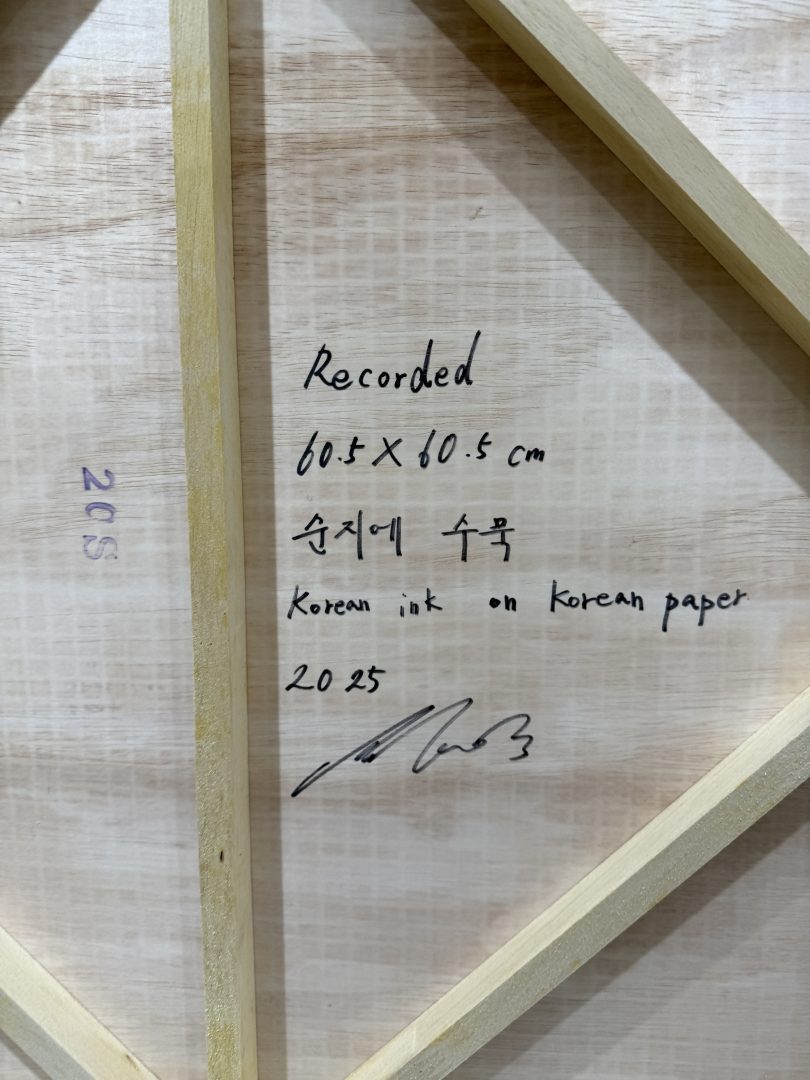 20S
Recorded
60.5 X 60.5 cm
순지에 수묵
Korean ink on Korean paper
2025